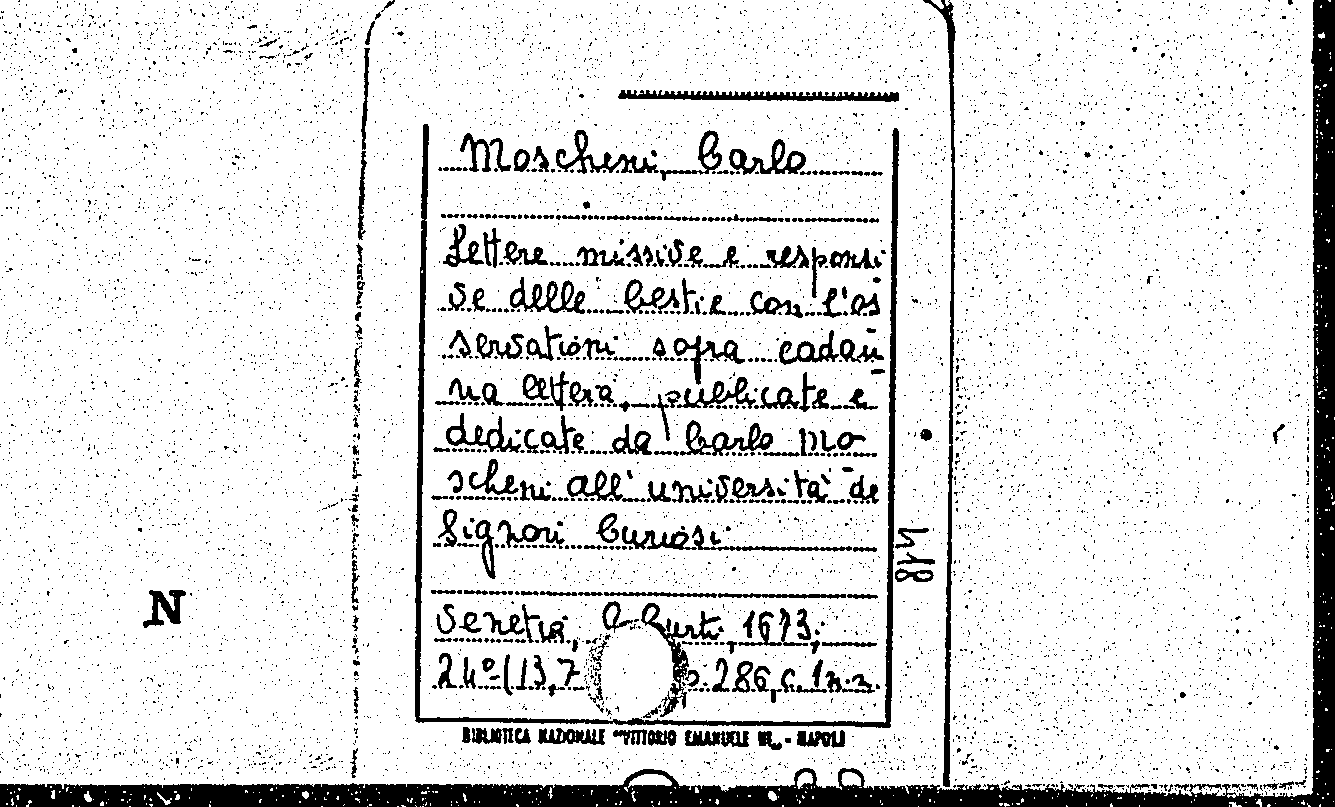 Moscheni, Carlo
Lettere missive e responsi
ve delle bestie con l'os
servationi sopra cadau
na lettera, publicate e
dedicate da Carlo Mo-
scheni all'università de
Signori Curiosi
Venetia, Curti, 1673;
24º (13,7 p. 286, c. 1 n.n.
BIBLIOTECA NAZIONALE "VITTORIO EMANUELE III„ - NAPOLI
N